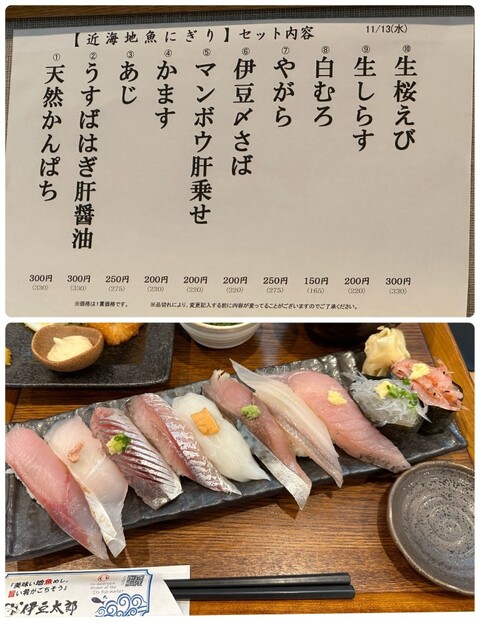 【近海地魚にぎり】セット内容
11/13(水)
① 天然かんぱち 300円 (330)
② うすばはぎ肝醬油 300円 (330)
③ あじ 250円 (275)
④ かます 200円 (220)
⑤ マンボウ肝乗せ 200円 (220)
⑥ 伊豆〆さば 200円 (220)
⑦ やがら 250円 (275)
⑧ 白むろ 150円 (165)
⑨ 生しらす 200円 (220)
⑩ 生桜えび 300円 (330)
※価格は1貫価格です。
※品切れにより、変更記入する前に内容が変ってることがございますのでご了承ください。
「美味い地魚めし。
旨い君がごちそう」
伊豆太郎